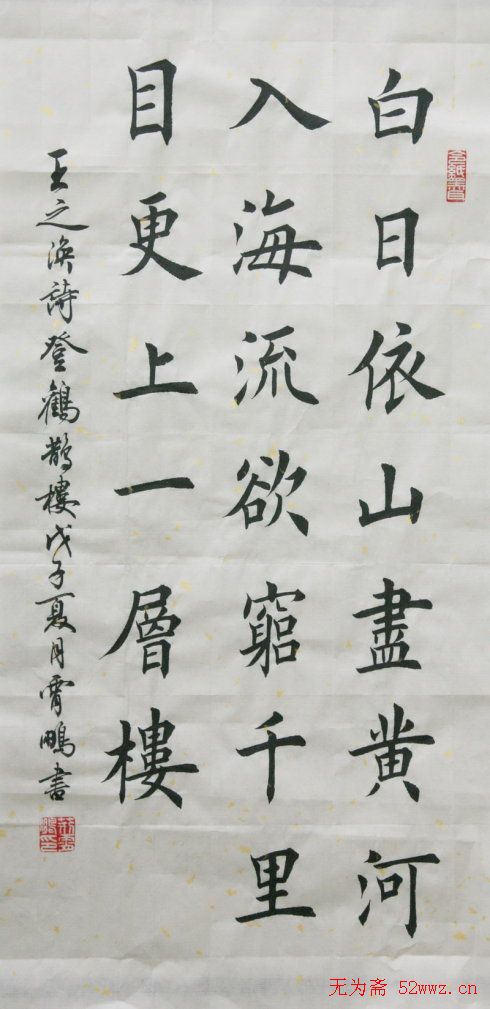 白日依山盡黄河
入海流欲窮千里
目更上一層樓
王之渙詩登鶴鵲樓戊子夏月霄鵬書
无为斋 52wwz.cn